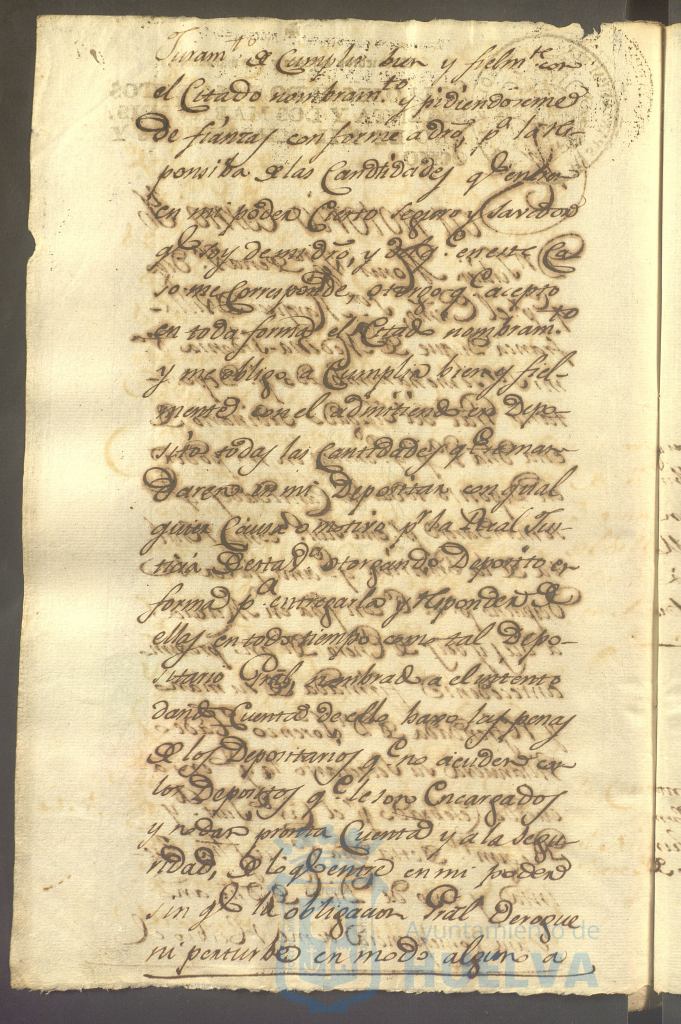 Juram.to de Cumplir bien y fielm.te con
el Citado nombram.to y pidiendoseme
de fianzas conforme a dro, p.a la res
ponsiva de las Cantidades q.e entren
en mi poder Cierto seguro y savedor
q.e soy de mi dro, y de lo q.e en este Ca
so me Corresponde, otorgo q.e acepto
en toda forma el Citado nombram.to
y me obligo a Cumplir bien y fiel-
mente con el admitiendo en Depo-
sito todas las Cantidades q.e se man
Daren en mi Depositar con qual
quier Causa o motivo p.r la Real Jus-
ticia Desta V.a otorgando Deposito en
forma p.a entregarla y responder de
ellas en todo tiempo como tal Depo-
sitario Gral, nombrado a el yntento
dando Cuenta de ello baxo las penas
de los Depositarios q.e no acuden con
los Depositos q.e le son Encargados
y no dan pronta Cuenta y a la segu-
ridad, de lo q.e entre en mi poder
sin q.e la obligacion Gral Derogue
ni perturbe en modo alguno a
Ayuntamiento de
HUELVA